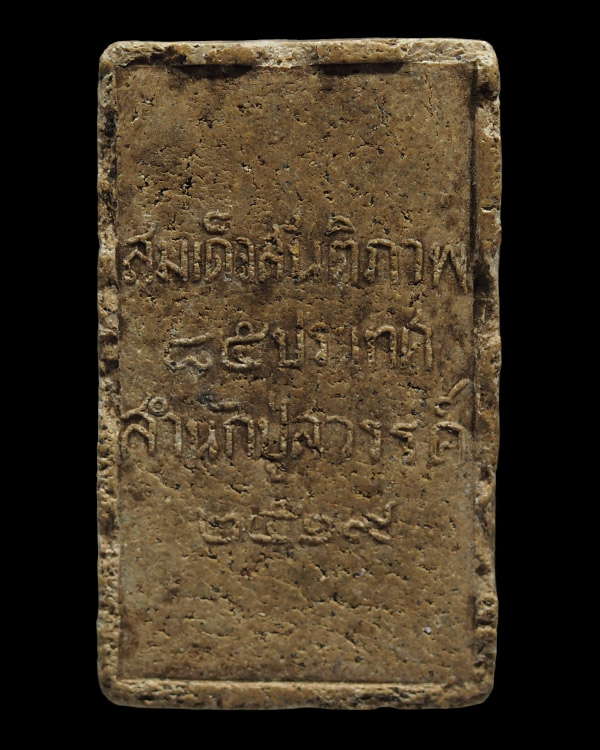 สมเด็จสันติภาพ
๘๕ประเทศ
สำนักปู่สวรรค์
๒๕๒๙